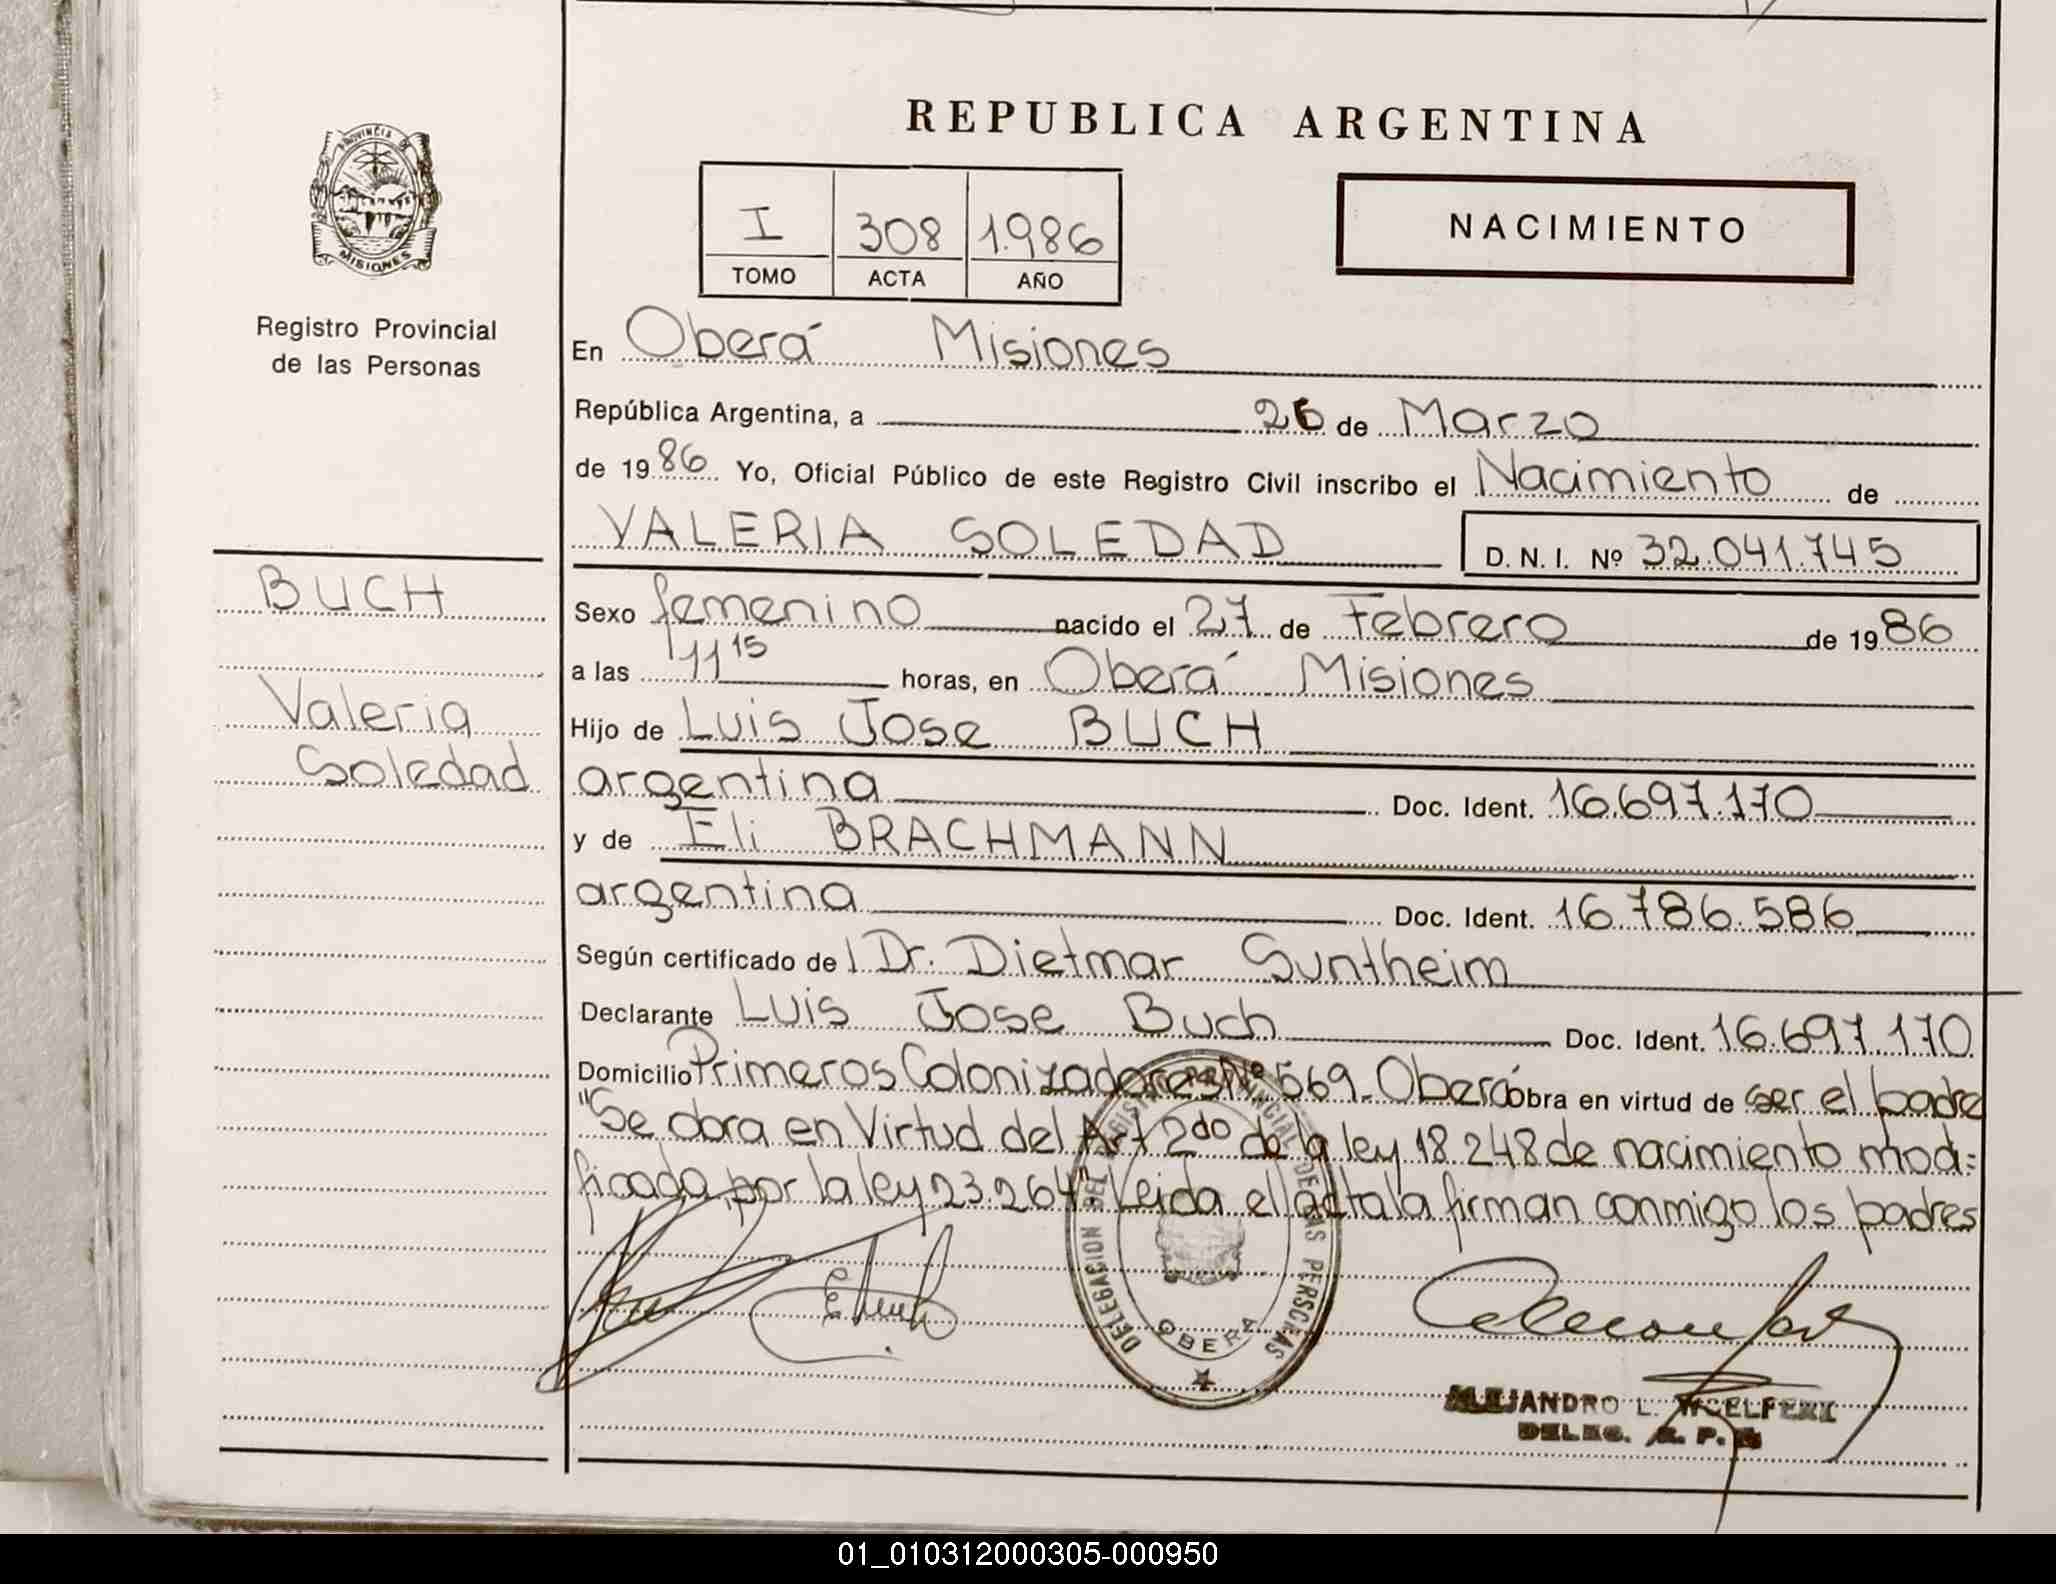 REPUBLICA ARGENTINA
PROVINCIA DE
MISIONES
I 308 1.986
TOMO ACTA AÑO
NACIMIENTO
Registro Provincial
de las Personas
En Oberá Misiones
República Argentina, a 26 de Marzo
de 1986 Yo, Oficial Público de este Registro Civil inscribo el Nacimiento de
VALERIA SOLEDAD D. N. I. Nº 32.041.745
BUCH
Valeria
Soledad
Sexo femenino nacido el 27 de Febrero de 1986
a las 11 15 horas, en Oberá Misiones
Hijo de Luis Jose BUCH
argentina Doc. Ident. 16.697.170
y de Eli BRACHMANN
argentina Doc. Ident. 16.786.586
Según certificado de Dr. Dietmar Suntheim
Declarante Luis Jose Buch Doc. Ident. 16.697.170
Domicilio Primeros Colonizadores Nº 569 - Oberá Obra en virtud de ser el padre
"Se obra en Virtud del Art 2do de la ley 18.248 de nacimiento modi=
ficada por la ley 23.264" Leida el acta la firman conmigo los padres
DELEGACION DEL REGISTRO PROVINCIAL DE LAS PERSONAS
OBERA
ALEJANDRO L. WOELFERT
DELEG. R. P. P.
01_010312000305-000950